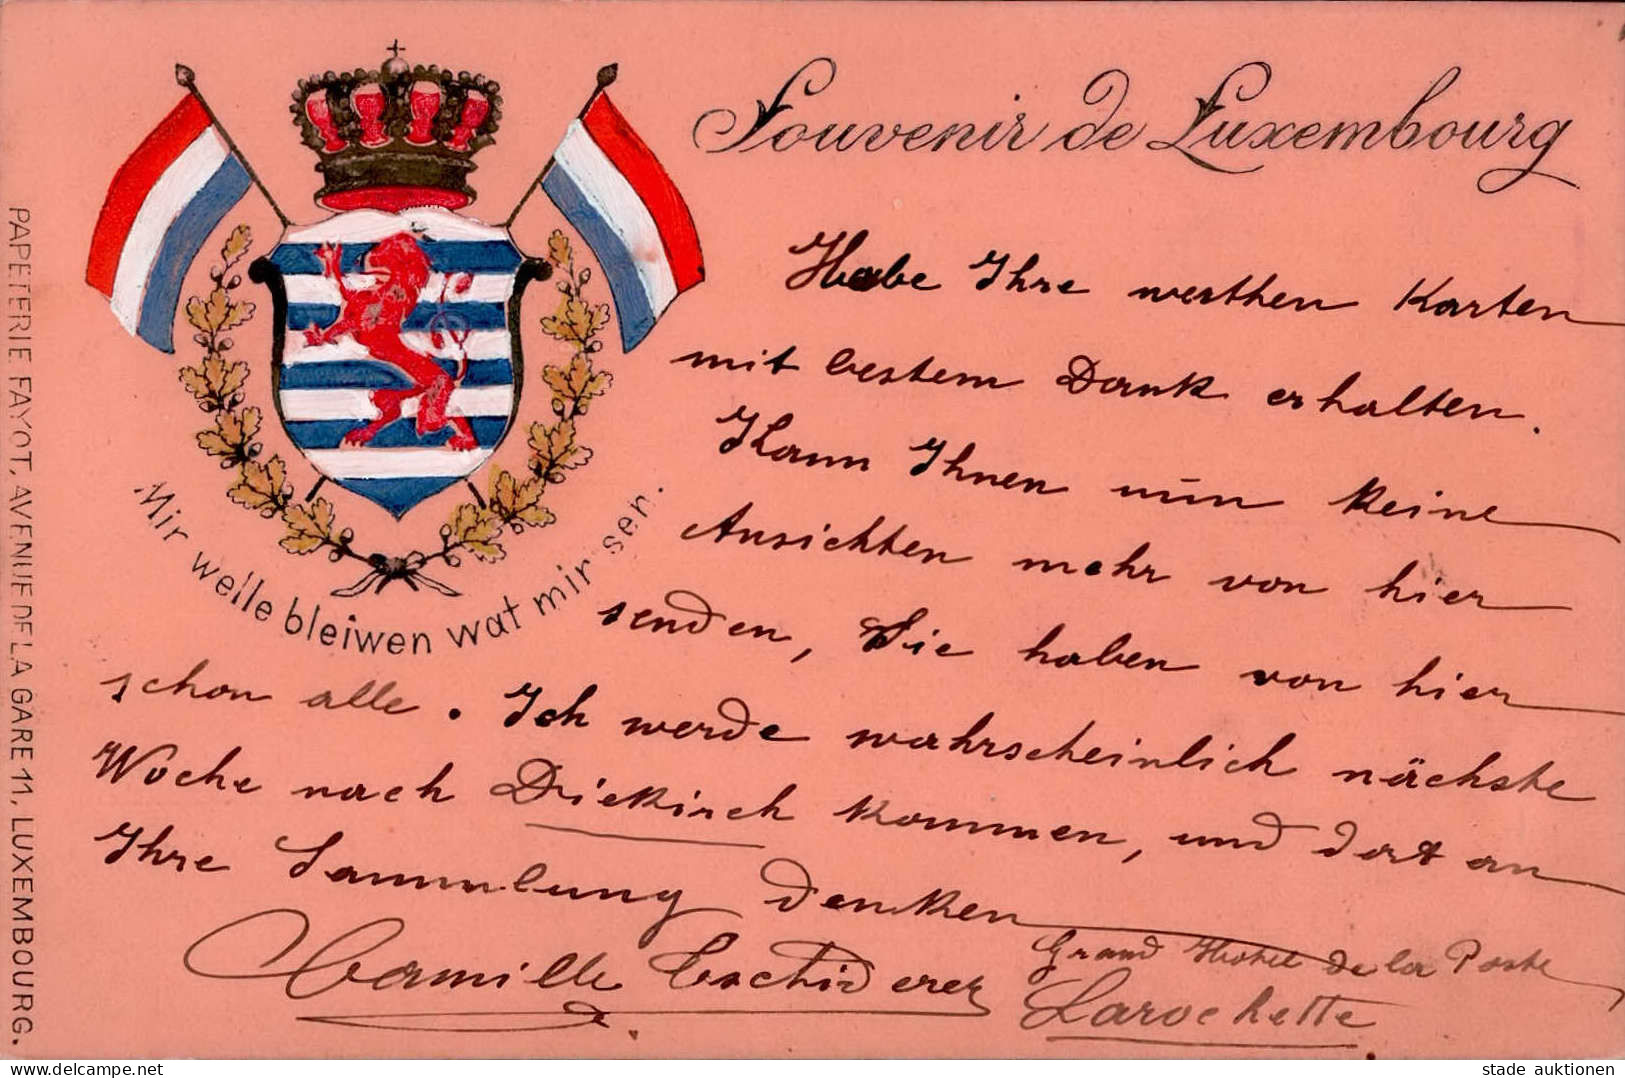 Souvenir de Luxembourg
Habe Ihre werthen Karten
mit bestem Dank erhalten.
Kann Ihnen nun keine
Ansichten mehr von hier
senden, Sie haben von hier
schon alle. Ich werde wahrscheinlich nächste
Woche nach Diekirch kommen, und dort an
Ihre Sammlung denken
Camille Eschiderer
Grand Hotel de la Poste
Larochette
Mir welle bleiwen wat mir sen.
PAPETERIE FAYOT, AVENUE DE LA GARE 11, LUXEMBOURG.
delcampe.net
stade auktionen